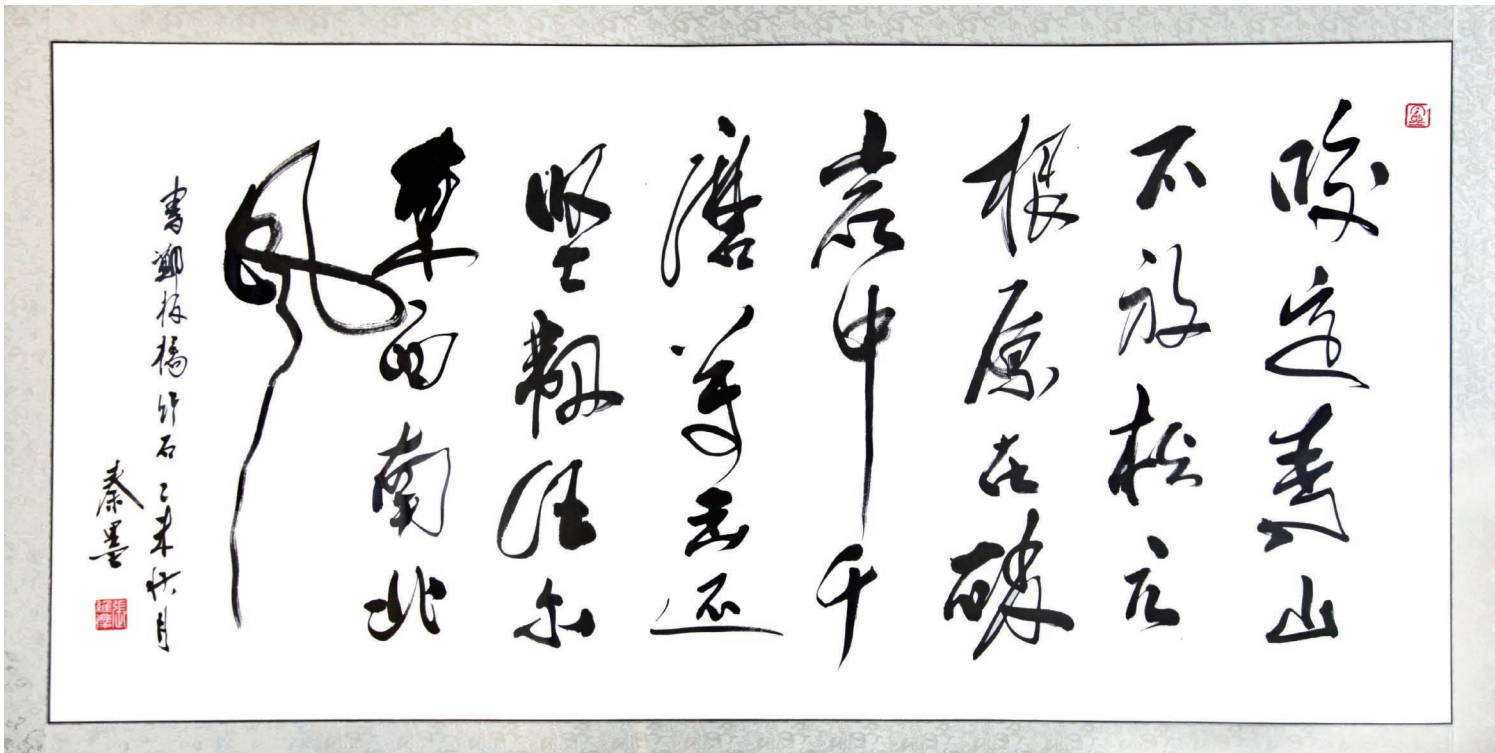 咬定青山
不放松立
根原在破
岩中千
磨萬击还
坚韌任尔
東西南北
风
書鄭板橋竹石 乙未秋月
秦墨